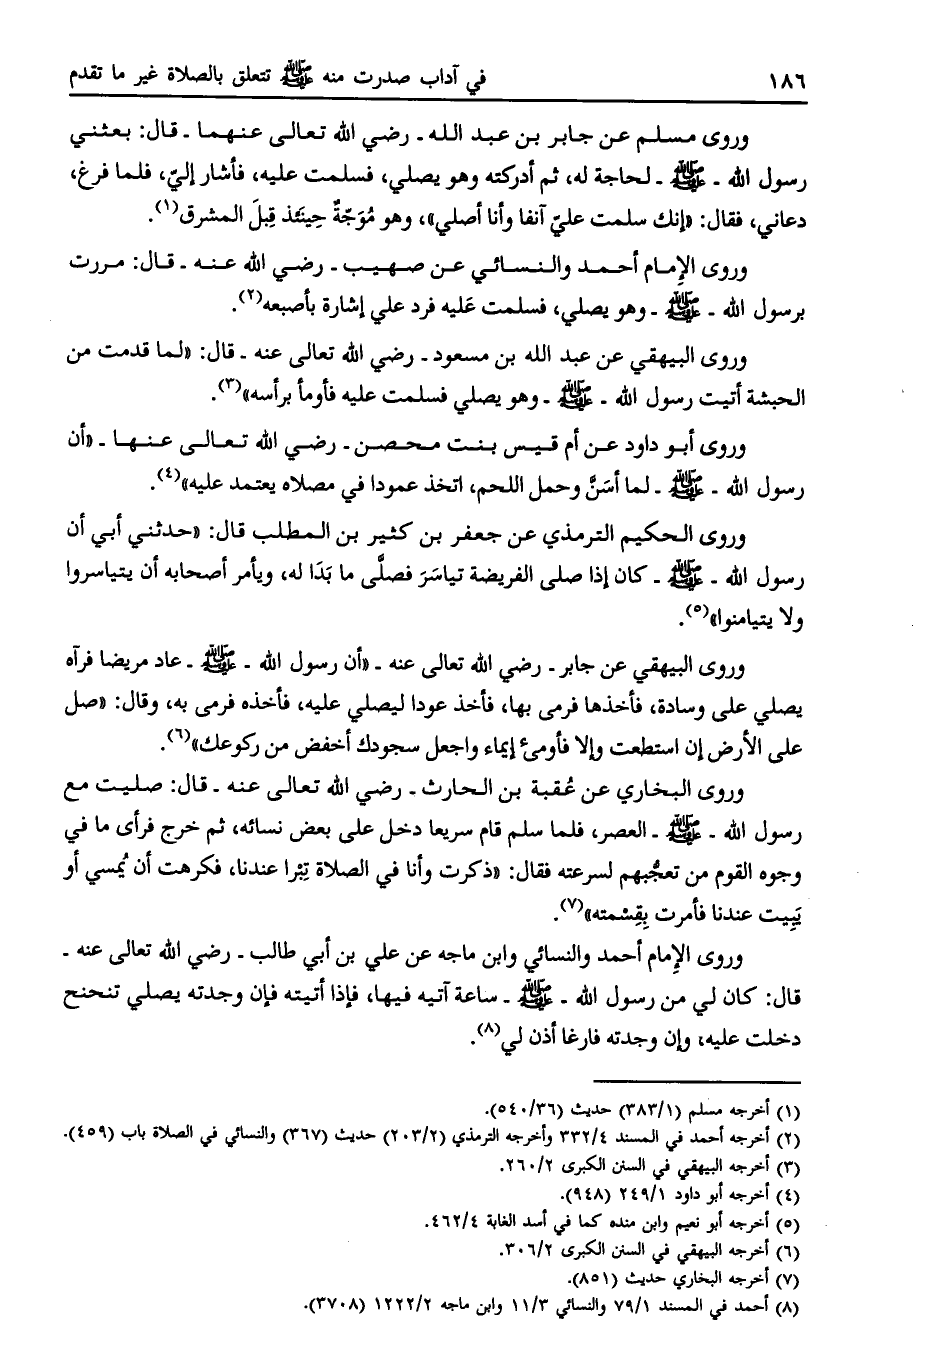 ١٨٦ في آداب صدرت منه ﷺ تتعلق بالصلاة غير ما تقدم
وروى مسلم عن جابر بن عبد الله ـ رضي الله تعالى عنهما ـ قال: بعثني
رسول الله ـ ﷺ ـ لحاجة له، ثم أدركته وهو يصلي، فسلمت عليه، فأشار إليّ، فلما فرغ،
دعاني، فقال: «إنك سلمت عليّ آنفا وأنا أصلي»، وهو مُوَجّةٌ حِينَئذ قِبلَ المشرق(١).
وروى الإمام أحمد والنسائي عن صهيب ـ رضي الله عنه ـ قال: مررت
برسول الله ـ ﷺ ـ وهو يصلي، فسلمت عَليه فرد علي إشارة بأصبعه(٢).
وروى البيهقي عن عبد الله بن مسعود ـ رضي الله تعالى عنه ـ قال: «لما قدمت من
الحبشة أتيت رسول الله ـ ﷺ ـ وهو يصلي فسلمت عليه فأومأ برأسه»(٣).
وروى أبو داود عن أم قيس بنت محصن ـ رضي الله تعالى عنها ـ «أن
رسول الله ـ ﷺ ـ لما أسَنَّ وحمل اللحم، اتخذ عمودا في مصلاه يعتمد عليه»(٤).
وروى الحكيم الترمذي عن جعفر بن كثير بن المطلب قال: «حدثني أبي أن
رسول الله ـ ﷺ ـ كان إذا صلى الفريضة تياسَرَ فصلَّى ما بَدَا له، ويأمر أصحابه أن يتياسروا
ولا يتيامنوا»(٥).
وروى البيهقي عن جابر ـ رضي الله تعالى عنه ـ «أن رسول الله ـ ﷺ ـ عاد مريضا فرآه
يصلي على وسادة، فأخذها فرمى بها، فأخذ عودا ليصلي عليه، فأخذه فرمى به، وقال: «صل
على الأرض إن استطعت وإلا فأومئ إيماء واجعل سجودك أخفض من ركوعك»(٦).
وروى البخاري عن عُقبة بن الحارث ـ رضي الله تعالى عنه ـ قال: صليت مع
رسول الله ـ ﷺ ـ العصر، فلما سلم قام سريعا دخل على بعض نسائه، ثم خرج فرأى ما في
وجوه القوم من تعجُّبهم لسرعته فقال: «ذكرت وأنا في الصلاة تِبْرا عندنا، فكرهت أن يُمسي أو
يَبِيت عندنا فأمرت بِقِسْمته»(٧).
وروى الإمام أحمد والنسائي وابن ماجه عن علي بن أبي طالب ـ رضي الله تعالى عنه ـ
قال: كان لي من رسول الله ـ ﷺ ـ ساعة آتيه فيها، فإذا أتيته فإن وجدته يصلي تنحنح
دخلت عليه، وإن وجدته فارغا أذن لي(٨).
(١) أخرجه مسلم (٣٨٣/١) حديث (٥٤٠/٣٦).
(٢) أخرجه أحمد في المسند ٣٣٢/٤ وأخرجه الترمذي (٢٠٣/٢) حديث (٣٦٧) والنسائي في الصلاة باب (٤٥٩).
(٣) أخرجه البيهقي في السنن الكبرى ٢٦٠/٢.
(٤) أخرجه أبو داود ٢٤٩/١ (٩٤٨).
(٥) أخرجه أبو نعيم وابن منده كما في أسد الغابة ٤٦٢/٤.
(٦) أخرجه البيهقي في السنن الكبرى ٣٠٦/٢.
(٧) أخرجه البخاري حديث (٨٥١).
(٨) أحمد في المسند ٧٩/١ والنسائي ١١/٣ وابن ماجه ١٢٢٢/٢ (٣٧٠٨).